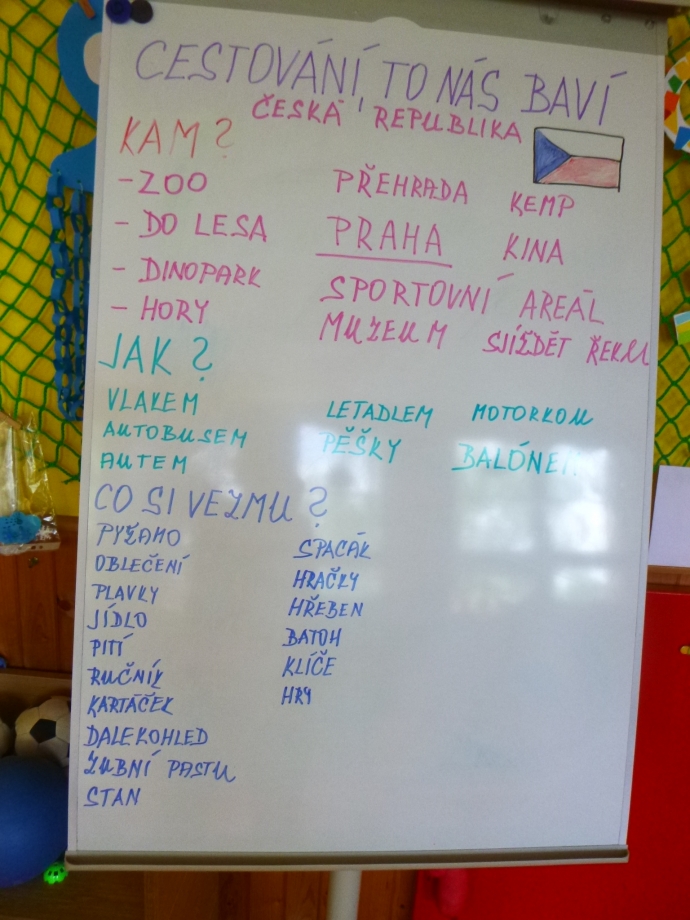 CESTOVÁNÍ, TO NÁS BAVÍ
ČESKÁ REPUBLIKA
KAM?
- ZOO
- DO LESA
- DINOPARK
- HORY
PŘEHRADA
PRAHA
SPORTOVNÍ AREÁL
MUZEUM
KEMP
KINA
SJÍŽDĚT ŘEKU
JAK?
VLAKEM
AUTOBUSEM
AUTEM
LETADLEM
PĚŠKY
MOTORKOU
BALÓNEM
CO SI VEZMU?
PYŽAMO
OBLEČENÍ
PLAVKY
JÍDLO
PITÍ
RUČNÍK
KARTÁČEK
DALEKOHLED
ZUBNÍ PASTU
STAN
SPACÁK
HRAČKY
HŘEBEN
BATOH
KLÍČE
HRY